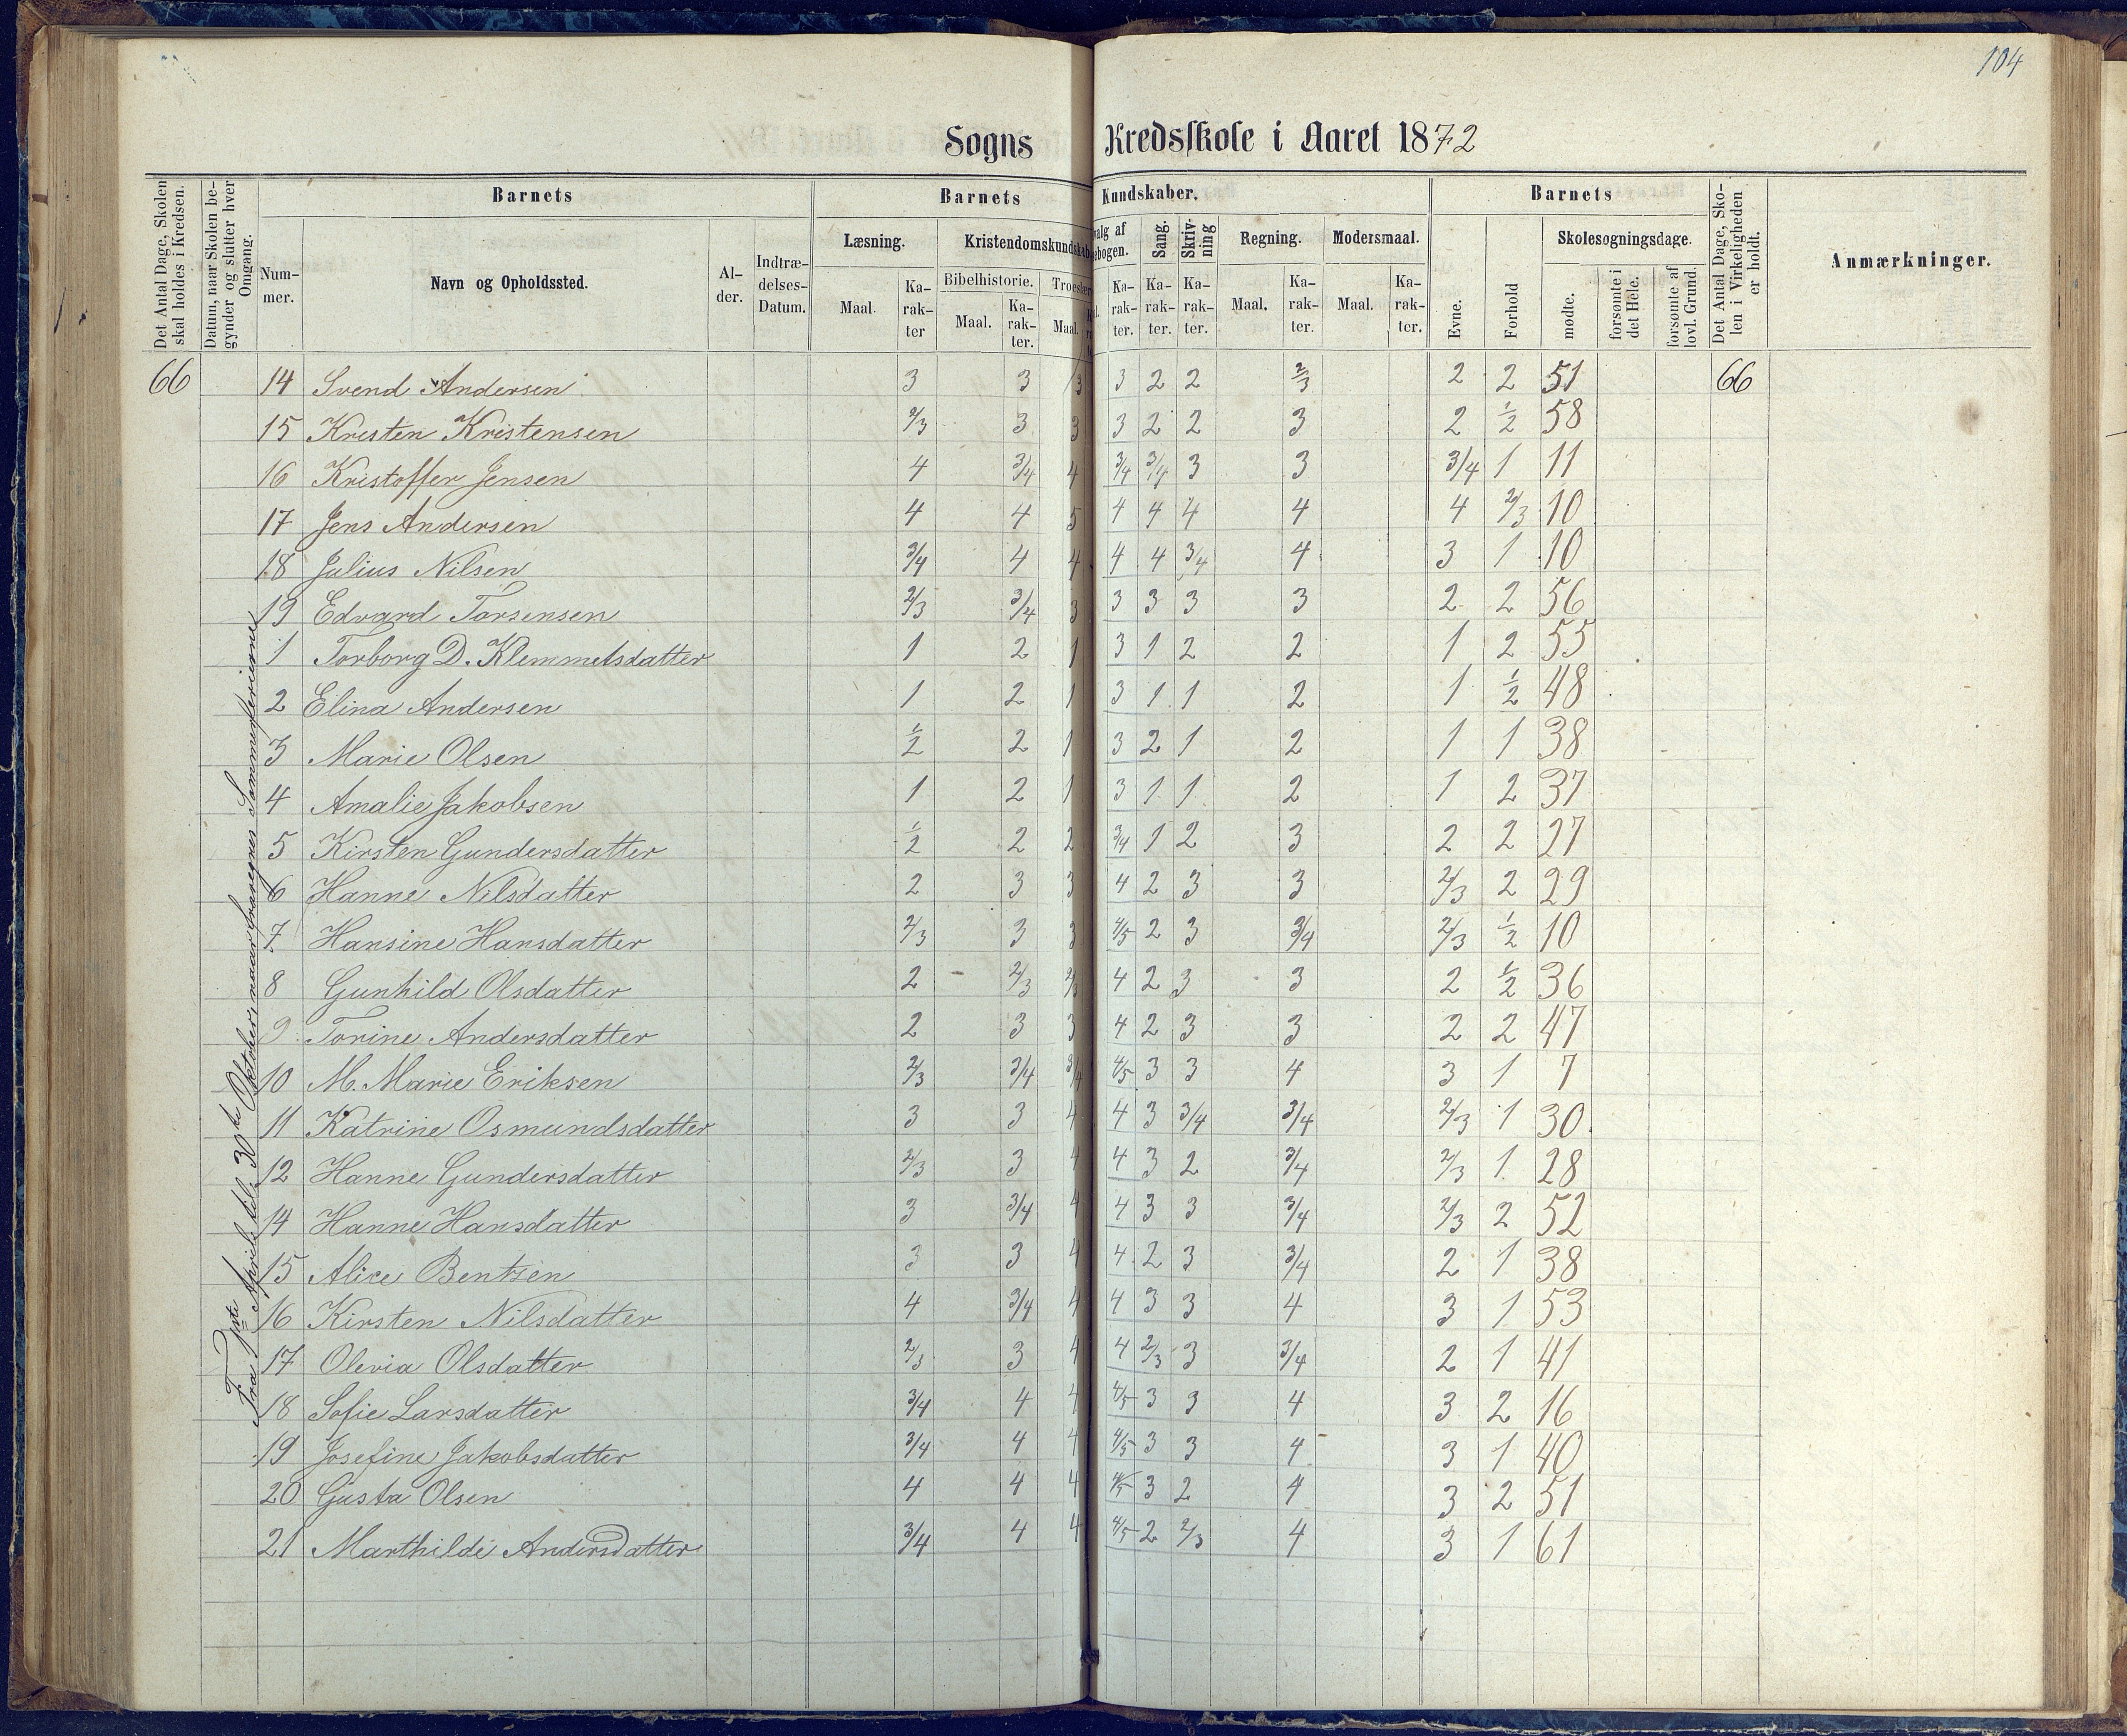 104
Sogns Kredsskole i Aaret 1872
Det Antal Dage, Skolen skal holdes i Kredsen.
Datum, naar Skolen begynder og slutter hver Omgang.
Barnets
Barnets Kundskaber.
Barnets
Det Antal Dage, Skolen i Virkeligheden er holdt.
Anmærkninger.
Nummer.
Navn og Opholdssted.
Alder.
Indtrædelses-Datum.
Læsning.
Kristendomskundskab
Bibelhistorie.
Troeslære
valg af
ebogen.
Sang.
Skrivning
Regning.
Modersmaal.
Evne.
Forhold
Skolesøgningsdage.
mødte.
forsømte i det Hele.
forsømte af lovl. Grund.
Maal. Karakter Maal. Karakter. Maal. Karakter. Karakter. Karakter. Maal. Karakter. Maal. Karakter.
Fra 1ste April til 30te Oktober, naar fraregnes Sommerferierne
66 14 Svend Andersen 3 3 3 3 2 2 2/3 2 2 51 66
15 Kristen Kristensen 2/3 3 3 3 2 2 3 2 1/2 58
16 Kristoffer Jensen 4 3/4 4 3/4 3/4 3 3 3/4 1 11
17 Jens Andersen 4 4 5 4 4 4 4 4 2/3 10
18 Julius Nilsen 3/4 4 4 4 4 3/4 4 3 1 10
19 Edvard Torsensen 2/3 3/4 3 3 3 3 3 2 2 56
1 Torborg D. Klemmetsdatter 1 2 1 3 1 2 2 1 2 55
2 Elina Andersen 1 2 1 3 1 1 2 1 1/2 48
3 Marie Olsen 1/2 2 1 3 2 1 2 1 1 38
4 Amalie Jakobsen 1 2 1 3 1 1 2 1 2 37
5 Kirsten Gundersdatter 1/2 2 2 3/4 1 2 3 2 2 27
6 Hanne Nilsdatter 2 3 3 4 2 3 3 2/3 2 29
7 Hansine Hansdatter 2/3 3 3 4/5 2 3 3/4 2/3 1/2 10
8 Gunhild Olsdatter 2 2/3 2/3 4 2 3 3 2 1/2 36
9 Torine Andersdatter 2 3 3 4 2 3 3 2 2 47
10 M. Marie Eriksen 2/3 3/4 3/4 4/5 3 3 4 3 1 7
11 Katrine Osmundsdatter 3 3 4 4 3 3/4 3/4 2/3 1 30
12 Hanne Gundersdatter 2/3 3 4 4 3 2 3/4 2/3 1 28
14 Hanne Hansdatter 3 3/4 4 4 3 3 3/4 2/3 2 52
15 Alice Bentsen 3 3 4 4 2 3 3/4 2 1 38
16 Kirsten Nilsdatter 4 3/4 4 4 3 3 4 3 1 53
17 Olevia Olsdatter 2/3 3 4 4 2/3 3 3/4 2 1 41
18 Sofie Larsdatter 3/4 4 4 4/5 3 3 4 3 2 16
19 Josefine Jakobsdatter 3/4 4 4 4/5 3 3 4 3 1 40
20 Gusta Olsen 4 4 4 4/5 3 2 4 3 2 51
21 Marthilde Andersdatter 3/4 4 4 4/5 2 2/3 4 3 1 61